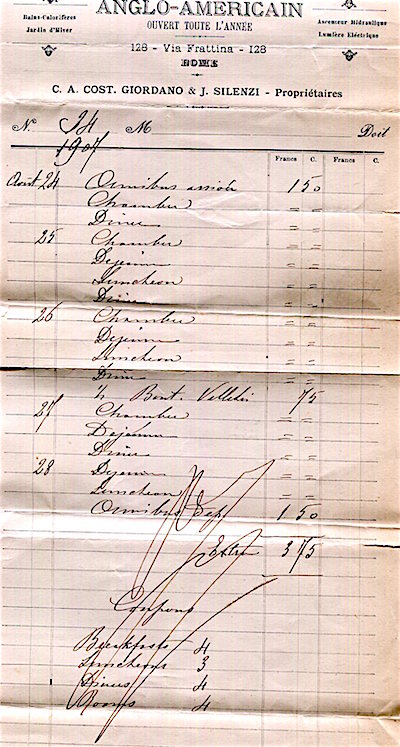 ANGLO-AMERICAIN
Bains-Calorifères
Jardin d'Hiver
OUVERT TOUTE L'ANNÉE
Ascenseur Hidraulique
Lumière Eléctrique
128 - Via Frattina - 128
ROME
C. A. COST. GIORDANO & J. SILENZI - Propriétaires
N. 24 M Doit
1907
Francs C. Francs C.
Aout 24 Omnibus arrivée 1 50
Chamber " "
Diner " "
25 Chamber " "
Dejeuner " "
Luncheon " "
Diner " "
26 Chamber " "
Dejeuner " "
Luncheon " "
Diner " "
½ Bout. Velletri 75
27 Chamber " "
Dejeuner " "
Diner " "
28 Dejeuner " "
Luncheon " "
Omnibus Dep. 1 50
Extra 3 75
Coupons
Breakfasts 4
Luncheons 3
Diners 4
Rooms 4